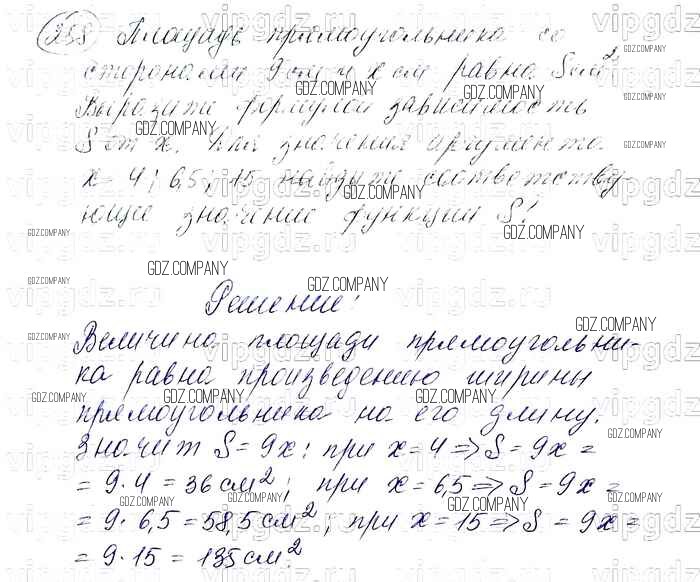 258 Площадь прямоугольника со
сторонами 9 см и x см равна S см².
Выразите формулой зависимость
S от x. Для значения аргумента
x = 4; 6,5; 15 найдите соответству-
ющее значение функции S!
Решение:
Величина площади прямоугольни-
ка равна произведению ширины
прямоугольника на его длину.
Значит S = 9x; при x = 4 => S = 9x =
= 9 · 4 = 36 см²; при x = 6,5 => S = 9x =
= 9 · 6,5 = 58,5 см²; при x = 15 => S = 9x =
= 9 · 15 = 135 см².